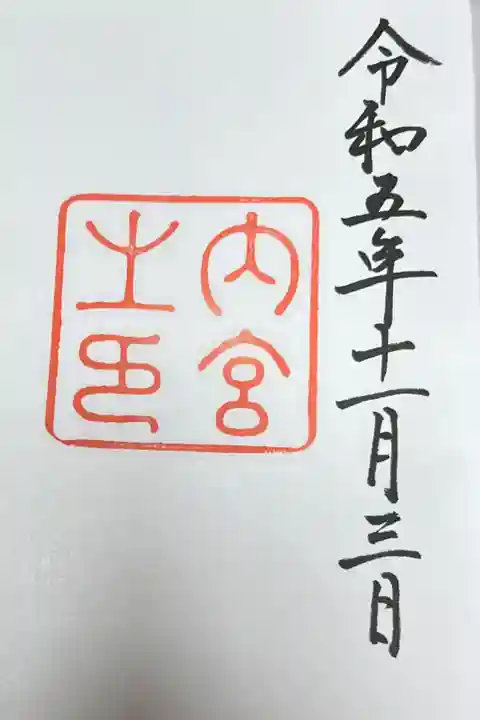 令和五年十一月三日
内宮
之印